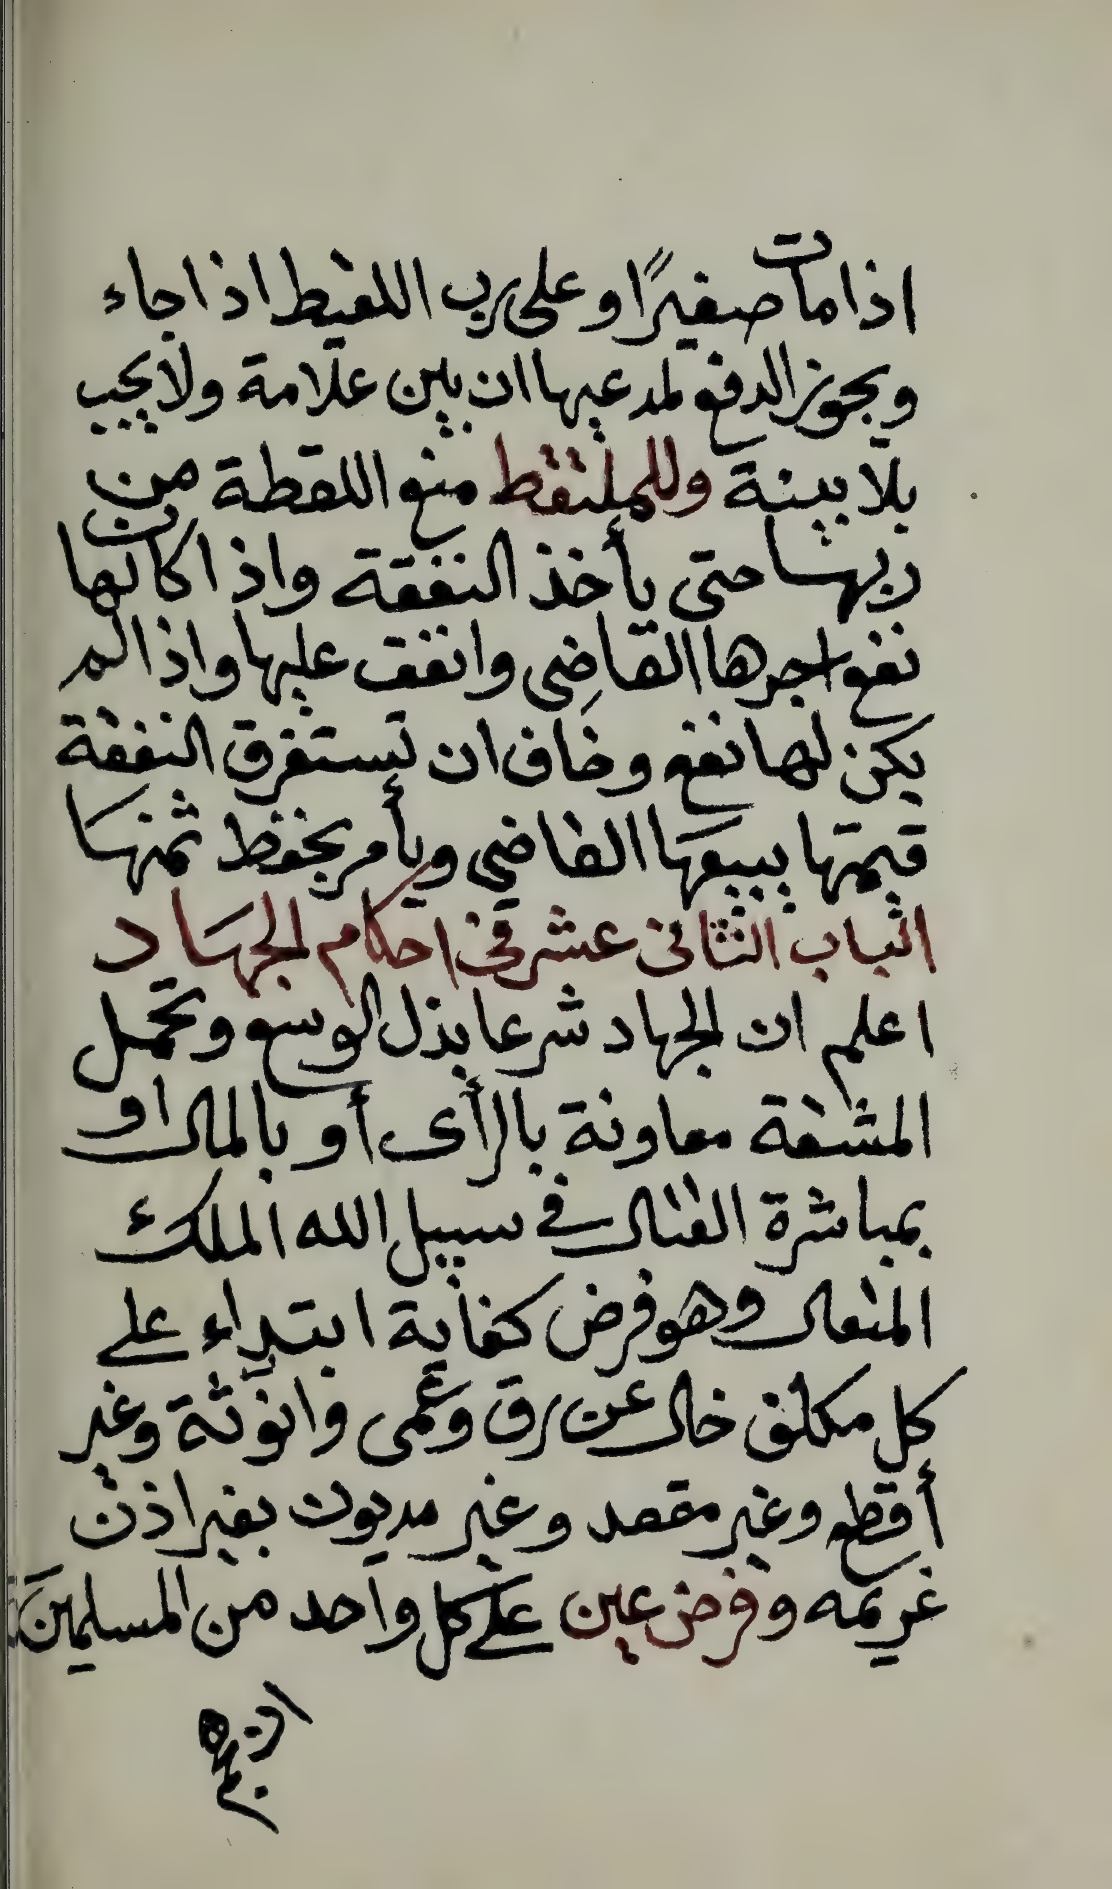 اذا مات صغيرًا وعلى رب اللقيط اذا جاء
ويجوز الدفع لمدعيها ان بين علامة ولا يجب
بلا بينة وللملتقط منع اللقطة من
ربها حتى يأخذ النفقة واذا كان لها
نفع اجرها القاضى وانفق عليها واذا لم
يكن لها نفع وخاف ان تستغرق النفقة
قيمتها يبيعها القاضي ويأمر بحفظ ثمنها
الباب الثانى عشر فى احكام الجهاد
اعلم ان الجهاد شرعا بذل الوسع وتحمل
المشقة معاونة بالرأى أو بالمال او
بمباشرة القتال في سبيل الله الملك
المتعال وهو فرض كفاية ابتداء على
كل مكلف خال عن رق وعمى وانوثة وغير
أقطع وغير مقعد وغير مديون بغير اذن
غريمه وفرض عين على كل واحد من المسلمين
ان هجم